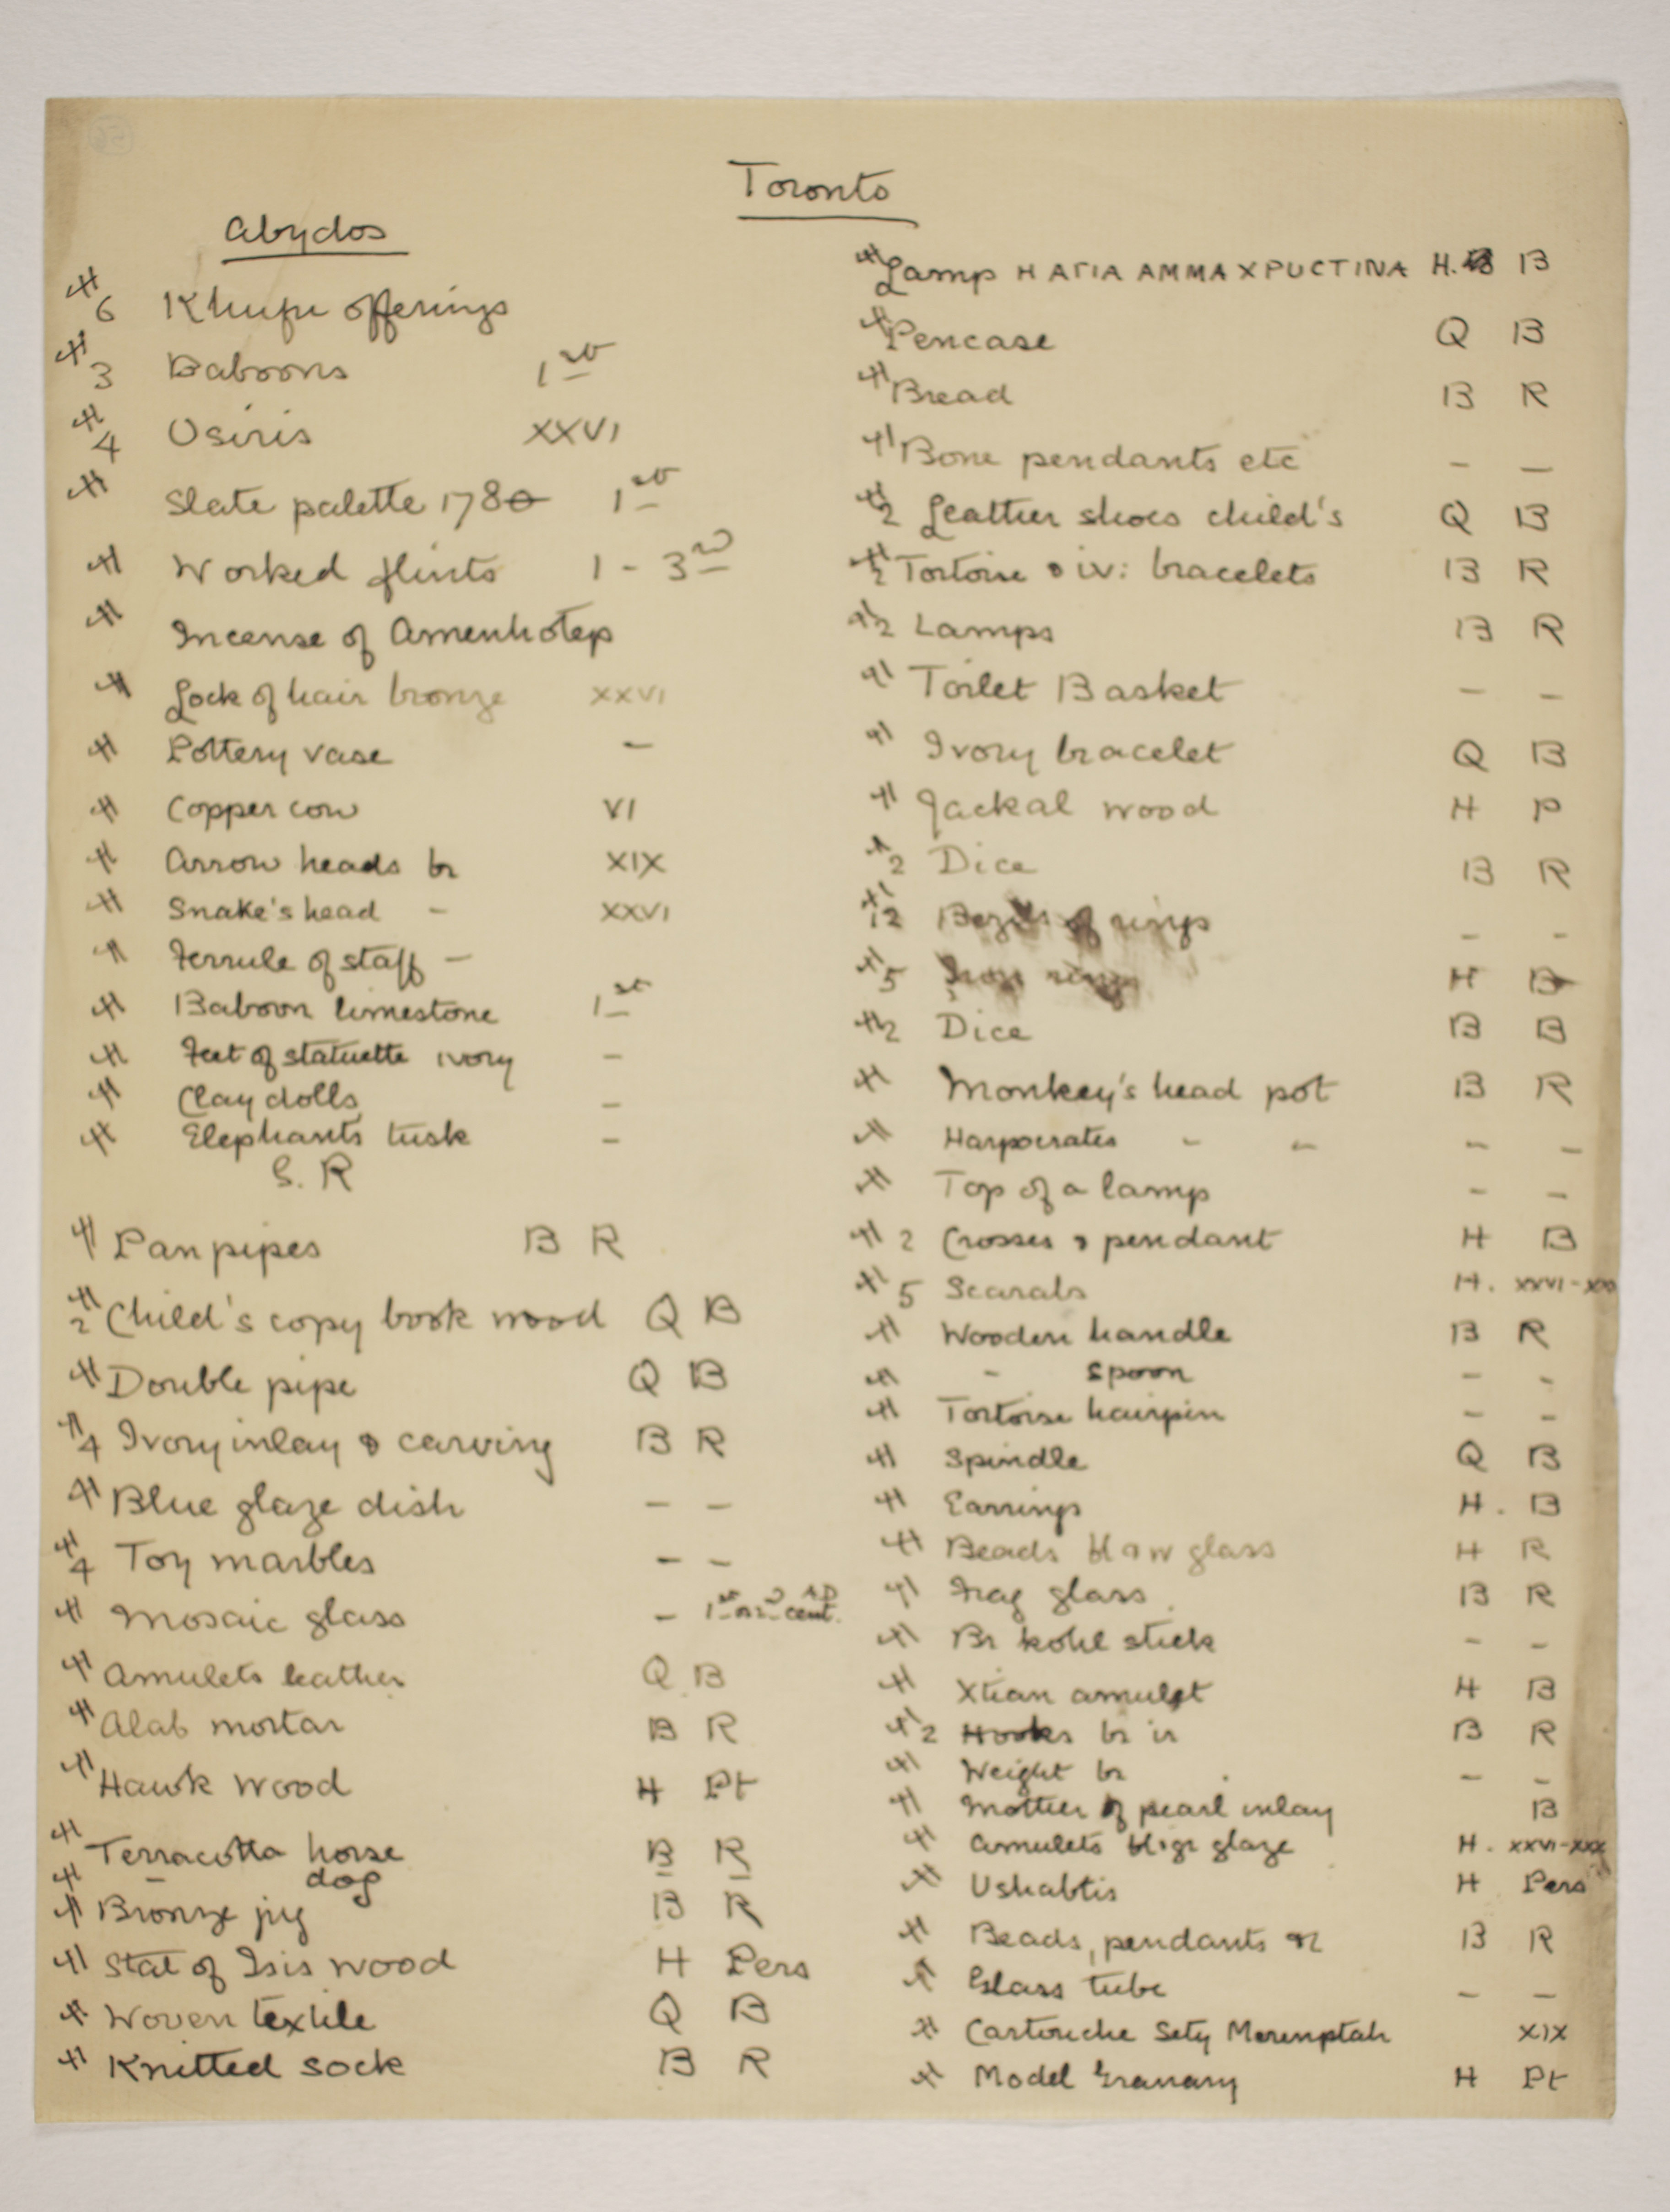 Toronto
Abydos
6 Khufu offerings
3 Baboons 1st
4 Osiris XXVI
Slate palette 178 1st
Worked flints 1 - 3rd
Incense of Amenhotep
Lock of hair bronze XXVI
Pottery vase -
Copper cow VI
Arrow heads br XIX
Snake's head - XXVI
Ferrule of staff -
Baboon limestone 1st
Feet of statuette ivory -
Clay dolls -
Elephants tusk -
G. R
Pan pipes B R
2 Child's copy book wood Q B
Double pipe Q B
4 Ivory inlay & carving B R
Blue glaze dish - -
4 Toy marbles - -
Mosaic glass - 1st or 2nd cent. A.D
Amulets leather Q B
Alab mortar B R
Hawk wood H Pt
Terracotta horse B R
- dog = =
Bronze jug B R
Stat of Isis wood H Pers
Woven textile Q B
Knitted sock B R
Lamp H ΑΓΙΑ AMMA XPUCTINA H. B
Pencase Q B
Bread B R
Bone pendants etc - -
2 Leather shoes child's Q B
2 Tortoise & iv: bracelets B R
2 Lamps B R
Toilet Basket - -
Ivory bracelet Q B
Jackal wood H P
2 Dice B R
12 Bezils of rings - -
5 Iron rings H B
2 Dice B B
Monkey's head pot B R
Harpocrates - - - -
Top of a lamp - -
2 Crosses & pendant H B
5 Scarabs H. XXVI-XXX
Wooden handle B R
- Spoon - -
Tortoise hairpin - -
Spindle Q B
Earrings H. B
Beads bl & w glass H R
Frag glass B R
Br kohl stick - -
Xtian amulet H B
2 Hooks br ir B R
Weight br - -
Mother of pearl inlay B
Amulets bl & gr glaze H. XXVI-XXX
Ushabtis H Pers
Beads, pendants &c B R
Glass tube - -
Cartouche Sety Merenptah XIX
Model Granary H Pt